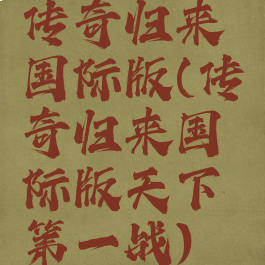 传奇归来
国际版(传
奇归来国
际版天下
第一战)